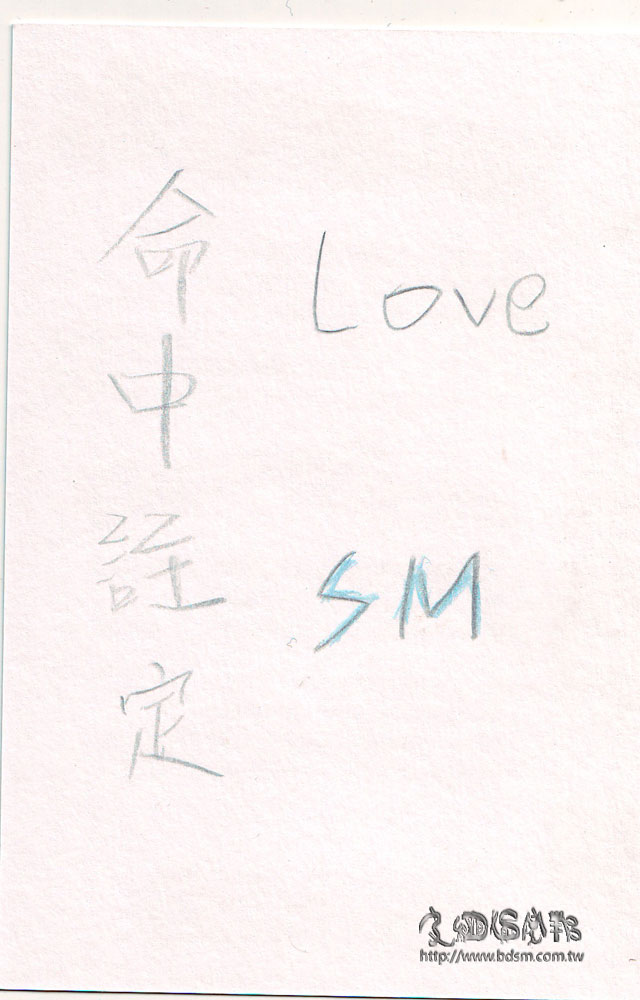 命中註定
Love
SM
http://www.bdsm.com.tw